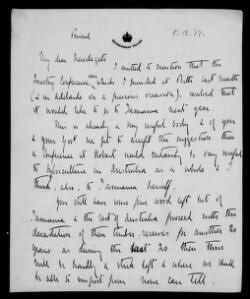 Private
8.12.17.
My dear Newdegate
I wanted to mention that the
Forestry Conference, which I presided at Perth last month
(& in Adelaide on a previous occasion) resolved that
it would like to go to Tasmania next year
This is already a very useful body & if you
& your Govt. see fit to accept this suggestion then
a Conference at Hobart would certainly be very useful
to Sylviculture in Australia as a whole & I
think, also, to Tasmania herself.
You still have some fine wood left but if
Tasmania & the rest of Australia proceed with the
devastation of their timber reserves for another 20
years as during the last 20 then there
will be hardly a stick left & where we shall
be able to import from none can tell.